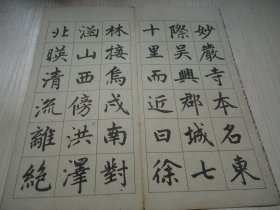 妙嚴寺本名東
際吳興郡城七
十里而近曰徐
林接烏戍南對
涵山西傍洪澤
北暎清流離絕